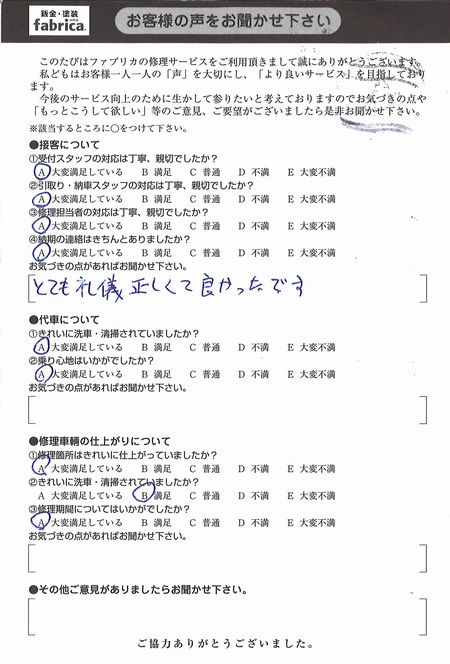 鈑金・塗装
fabrica.
お客様の声をお聞かせ下さい
このたびはファブリカの修理サービスをご利用頂きまして誠にありがとうございます。
私どもはお客様一人一人の「声」を大切にし、「より良いサービス」を目指しており
ます。
今後のサービス向上のために生かして参りたいと考えておりますのでお気づきの点や
「もっとこうして欲しい」等のご意見、ご要望がございましたら是非お聞かせ下さい。
※該当するところに○をつけて下さい。
●接客について
①受付スタッフの対応は丁寧、親切でしたか？
A 大変満足している B 満足 C 普通 D 不満 E 大変不満
②引取り・納車スタッフの対応は丁寧、親切でしたか？
A 大変満足している B 満足 C 普通 D 不満 E 大変不満
③修理担当者の対応は丁寧、親切でしたか？
A 大変満足している B 満足 C 普通 D 不満 E 大変不満
④納期の連絡はきちんとありましたか？
A 大変満足している B 満足 C 普通 D 不満 E 大変不満
お気づきの点があればお聞かせ下さい。
とても礼儀正しくて良かったです
●代車について
①きれいに洗車・清掃されていましたか？
A 大変満足している B 満足 C 普通 D 不満 E 大変不満
②乗り心地はいかがでしたか？
A 大変満足している B 満足 C 普通 D 不満 E 大変不満
お気づきの点があればお聞かせ下さい。
●修理車輌の仕上がりについて
①修理箇所はきれいに仕上がっていましたか？
A 大変満足している B 満足 C 普通 D 不満 E 大変不満
②きれいに洗車・清掃されていましたか？
A 大変満足している B 満足 C 普通 D 不満 E 大変不満
③修理期間についてはいかがでしたか？
A 大変満足している B 満足 C 普通 D 不満 E 大変不満
お気づきの点があればお聞かせ下さい。
●その他ご意見がありましたらお聞かせ下さい。
ご協力ありがとうございました。